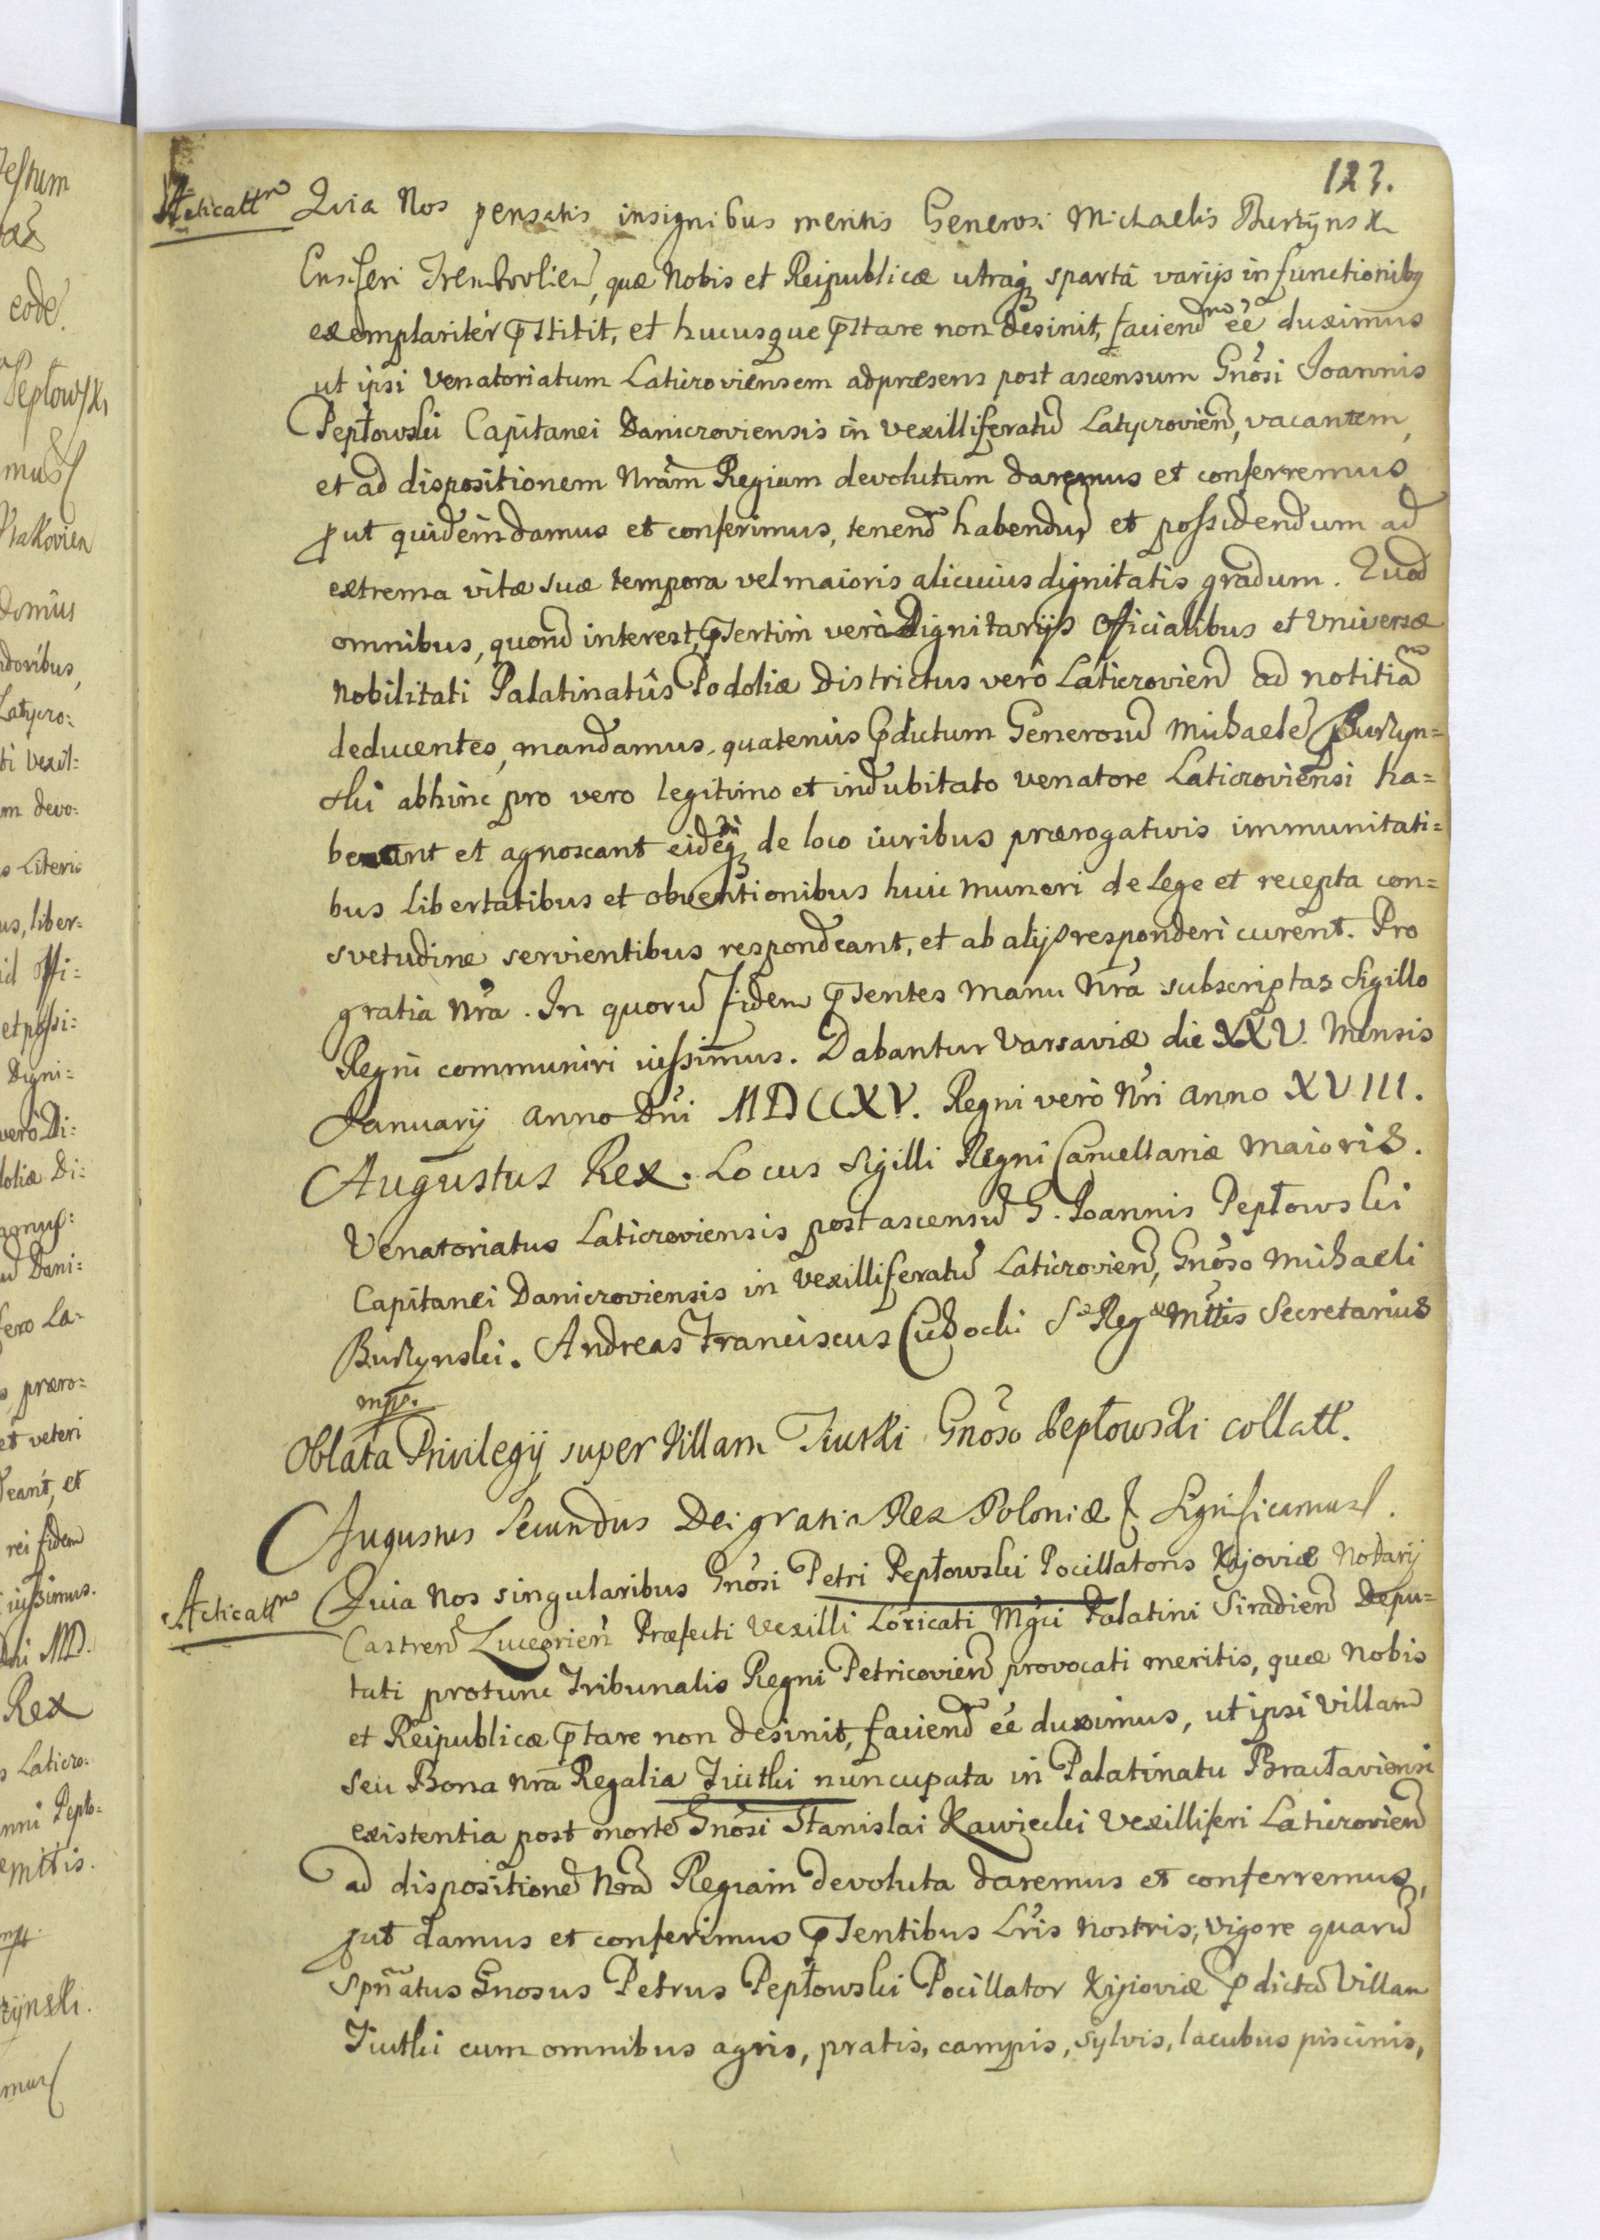 123.
Acticattm Quia Nos pensatis insignibus meritis Generosi Michaelis Burzynsk
Ensiferi Trembovlien, quæ Nobis et Reipublicæ utraq sparta varijs in functionibg
exemplariter pstitit, et hucusque pstare non desinit, faciendm eē duximus
ut ipsi Venatoriatum Laticzoviensem adpræsens post ascensum Gnosi Joannis
Pepłowski Capitanei Daniczoviensis in vexilliferatu Latyczovien, vacantem,
et ad dispositionem Nram Regiam devolutum daremus et conferremus
put quidem damus et conferimus, tenend habendu et possidendum ad
extrema vitæ suæ tempora vel maioris alicuius dignitatis gradum. Quod
omnibus, quoru interest, psertim verò Dignitarijs Officialibus et Universæ
Nobilitati Palatinatûs Podoliæ Districtus verô Laticzovien ad notitiam
deducentes, mandamus, quatenus pdictum Generosu Michaele Burzyn=
ski abhinc pro vero legitimo et indubitato venatore Laticzoviensi ha=
beant et agnoscant eideq de loco iuribus prærogativis immunitati=
bus libertatibus et obventionibus huic muneri de Lege et recepta con=
svetudine servientibus respondeant, et ab alijs responderi curent. Pro
gratia Nra. In quoru fidem psentes manu Nra subscriptas Sigillo
Regni communiri iussimus. Dabantur Varsaviæ die XXV. Mensis
Januarij anno Dni MDCCXV. Regni verò Nri anno XVIII.
Augustus Rex. Locus Sigilli Regni Cancellariæ Maioris.
Venatoriatus Laticzoviensis post ascensu G. Joannis Pepłowski
Capitanei Daniczoviensis in Vexilliferatu Laticzovien, Gnoso Michaeli
Burzynski. Andreas Franciscus Cichocki S Reg Mttis Secretarius
mp.
Oblata Privilegij super Villam Tiutki Gnoso Pepłowski collatt.
Augustus Secundus Dei gratia Rex Poloniæ Significamus.
Acticattm Quia nos singularibus Gnosi Petri Pepłowski Pocillatoris Kijoviæ Notarij
Castren Luceorien Præfecti Vexilli Loricati Mgci Palatini Siradien Depu=
tati protunc Tribunalis Regni Petricovien provocati meritis, quæ Nobis
et Reipublicæ pstare non desinit, faciend eē duximus, ut ipsi Villam
seu Bona nra Regalia Tiutki nuncupata in Palatinatu Bracłaviensi
existentia post morte Gnosi Stanislai Kawiecki Vexilliferi Laticzovien
ad dispositione Nram Regiam devoluta daremus et conferremus,
put damus et conferimus psentibus Lris nostris, vigore quaru
Spnatus Gnosus Petrus Pepłowski Pocillator Kijioviæ pdicta Villam
Tiutki cum omnibus agris, pratis, campis, sylvis, lacubus piscinis,